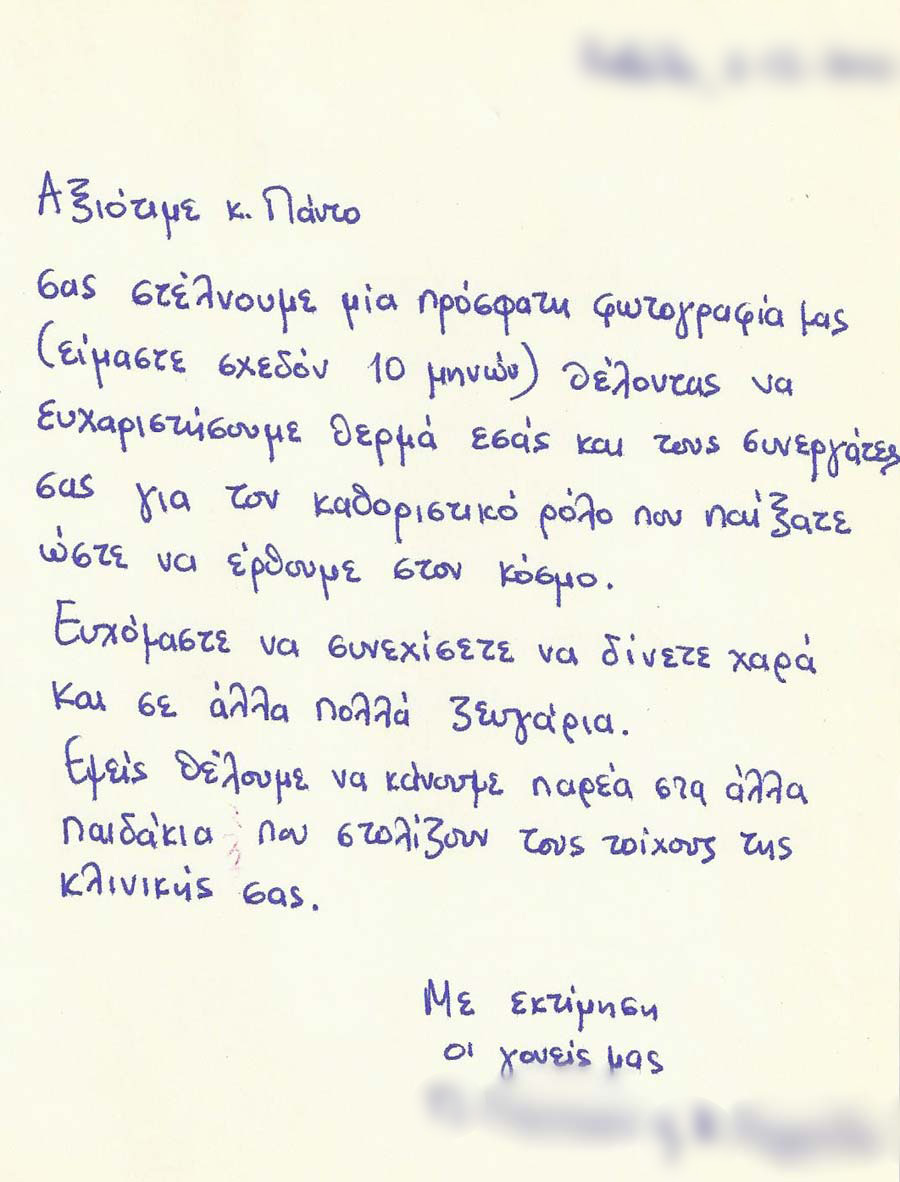 Αξιότιμε κ. Πάντο
σας στέλνουμε μία πρόσφατη φωτογραφία μας
(είμαστε σχεδόν 10 μηνών) θέλοντας να
ευχαριστήσουμε θερμά εσάς και τους συνεργάτες
σας για τον καθοριστικό ρόλο που παίξατε
ώστε να έρθουμε στον κόσμο.
Ευχόμαστε να συνεχίσετε να δίνετε χαρά
και σε άλλα πολλά ζευγάρια.
Εμείς θέλουμε να κάνουμε παρέα στα άλλα
παιδάκια που στολίζουν τους τοίχους της
κλινικής σας.
Με εκτίμηση
οι γονείς μας